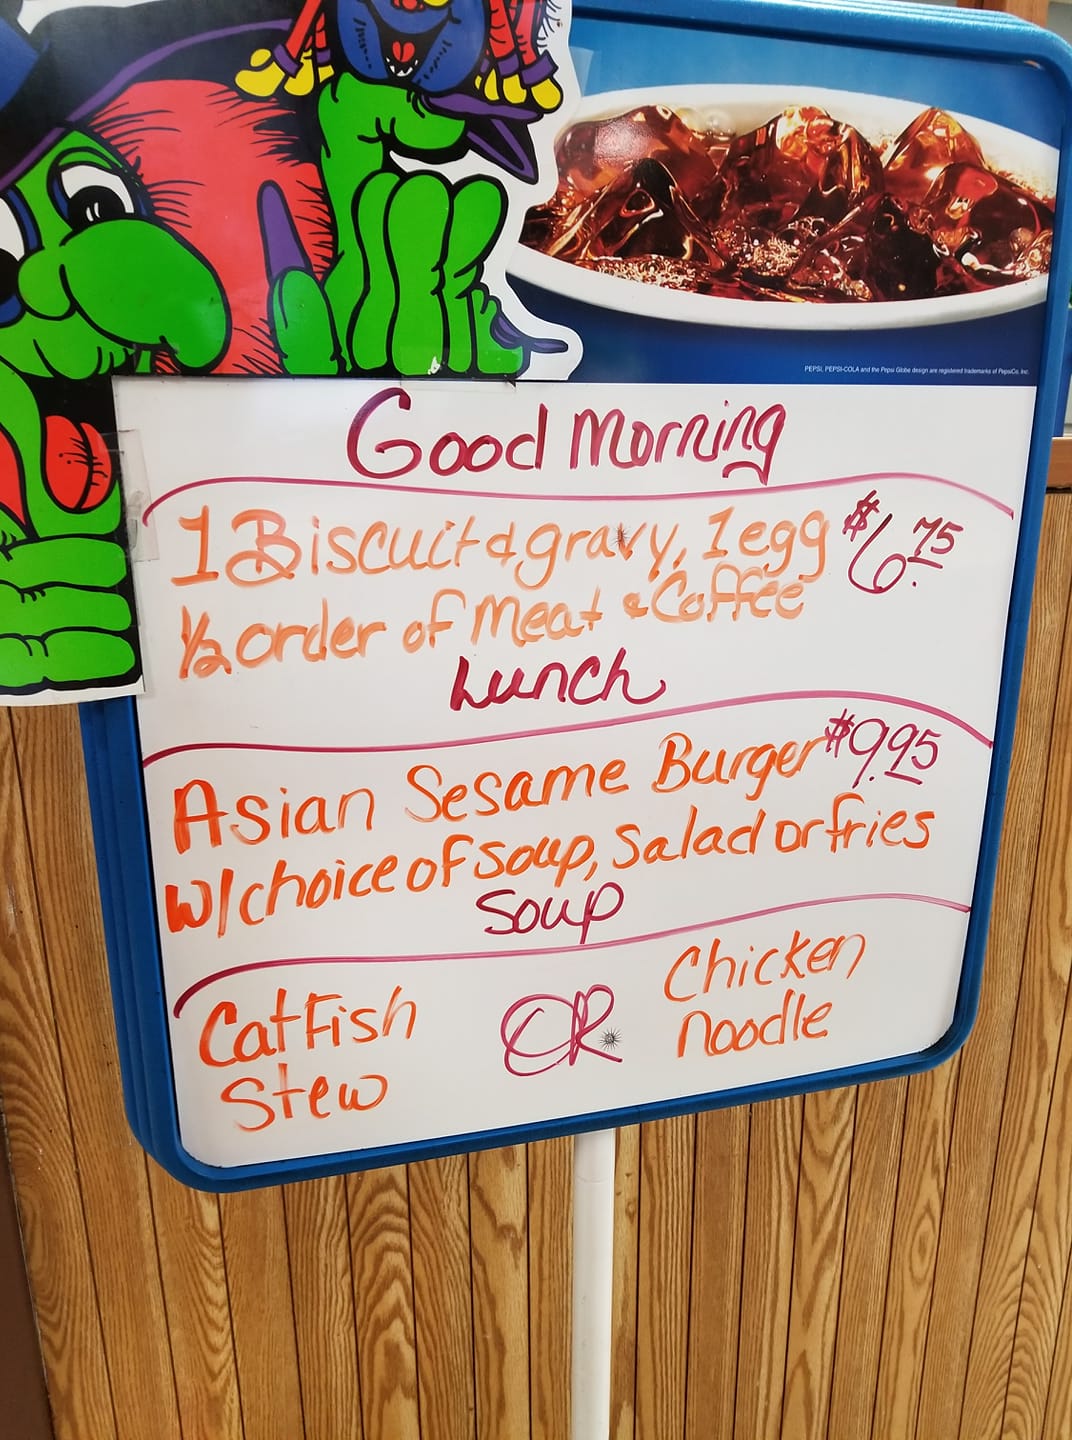 PEPSI, PEPSI-COLA and the Pepsi Globe design are registered trademarks of PepsiCo, Inc.
Good Morning
1 Biscuit & gravy, 1 egg $6.75
1/2 order of Meat & Coffee
Lunch
Asian Sesame Burger $9.95
w/choice of soup, Salad or fries
Soup
CatFish OR Chicken
Stew noodle